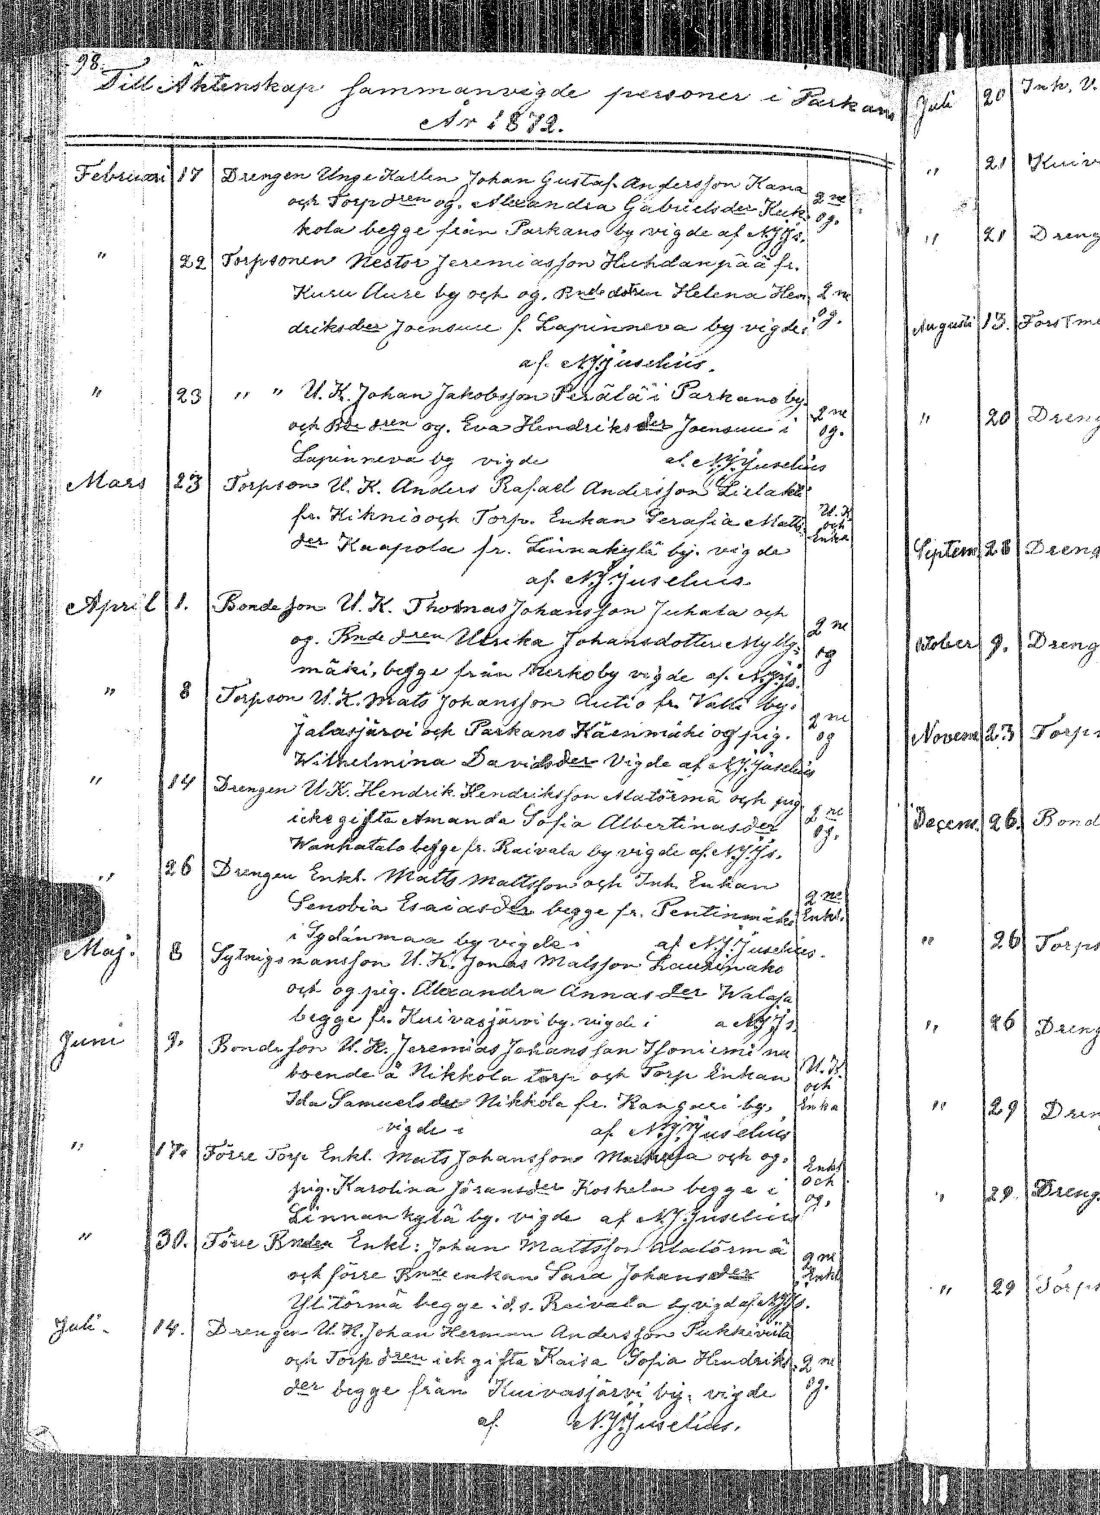 98.
Till Äktenskap sammanvigde personer i Parkano
År 1872.
Februari 17 Drengen Unge Karlen Johan Gustaf Andersson Kana
och Torp dren og. Alexandra Gabriels der Kuk= 2 ne
kola begge från Parkano by vigde af NJJs. og.
" 22 Torpsonen Nestor Jeremiasson Huhdanpää fr.
Kuru Aure by och og. Bnde dotren Helena Hen= 2 ne
driksder Joensuu f. Lapinneva by vigde: og.
af. N.J.Juselius.
" 23 " " U.K. Johan Jakobsson Perälä i Parkano by.
och Bde dren og. Eva Hendriks der Joensuu i 2 ne og.
Lapinneva by vigde af. N.J.Juselius
Mars 23 Torpson U.K. Anders Rafael Andersson Lielaht
fr. Kiknio och Torp. Enkan Serafia Matts= U.K. och
der Kaapola fr. Linnakylä by. vigde Enka
af. N.J.Juselius.
April 1. Bonde son U.K. Thomas Johansson Juhala och
og. Bnde dren Ulrika Johansdotter Mylly= 2 ne
mäki, begge från Kerkoby vigde af. N.J.Js. og
" 8 Torpson U.K. Mats Johansson Autio fr. Valli by.
Jalasjärvi och Parkano Käenmäki og pig. 2 ne
Wilhelmina Davidsder Vigde af N.J.Juselius og
" 14 Drengen U.K. Hendrik Hendriksson Alatörmä och pig
icke gifta Amanda Sofia Albertinasder 2 ne
Wanhatalo begge fr. Raivala by vigde af. N.J.Js. og.
" 26 Drengen Enkl. Matts Mattsson och Inh. Enkan
Senobia Esaiasder begge fr. Pentinmäki 2 ne Enkl.
i Sydänmaa by vigde i af N.J.Juselius.
Maj. 8 Sytnigsmansson U.K. Jonas Matsson Laurinaho
och og pig. Alexandra Annas der
begge fr. Kuivasjärvi by. vigde i a N.J.Js
Juni 9. Bonde son U.K. Jeremias Johansson Isoniemi
boende å Nikkola torp och Torp Enkan U.K. och
Ida Samuelsder Nikkola fr. by. Enka
vigde i af. N.J.Juselius
" 17. Förre Torp Enkl. Mats Johansson och og. Enkl
pig. Karolina Jöransder Koskela begge i och
Linnankylä by. vigde af N.J.Juselius og.
" 30. Förre Bnden Enkl: Johan Mattsson Alatörmä 2 ne
och förre Bnde enkan Sara Johansder Enkl
Ylitörmä begge i d.s. Raivala by vigd af. N.J.Js.
Juli. 14. Drengen U.K. Johan Herman Andersson
och Torp dren ick gifta Kaisa Sofia Hendriks= 2 ne
der begge från Kuivasjärvi by. vigde og.
af. N.J.Juselius.
Juli 20 Inh. V.
" 21 Kuiv
" 21 Dreng
Augusti 13. Forstme
" 20 Dreng
Septem 28 Dreng
ktober 9. Dreng
Novem 23 Torps
Decem. 26. Bond
" 26 Torps
" 26 Dreng
" 29 Dren
" 29. Dreng
" 29 Torps